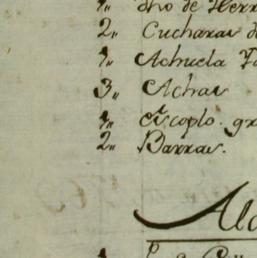 1,, Dho de Herr
2,, Cucharas d
1,, Achuela
3,, Achas
1,, escoplo gr
2,, Barras.
Alo